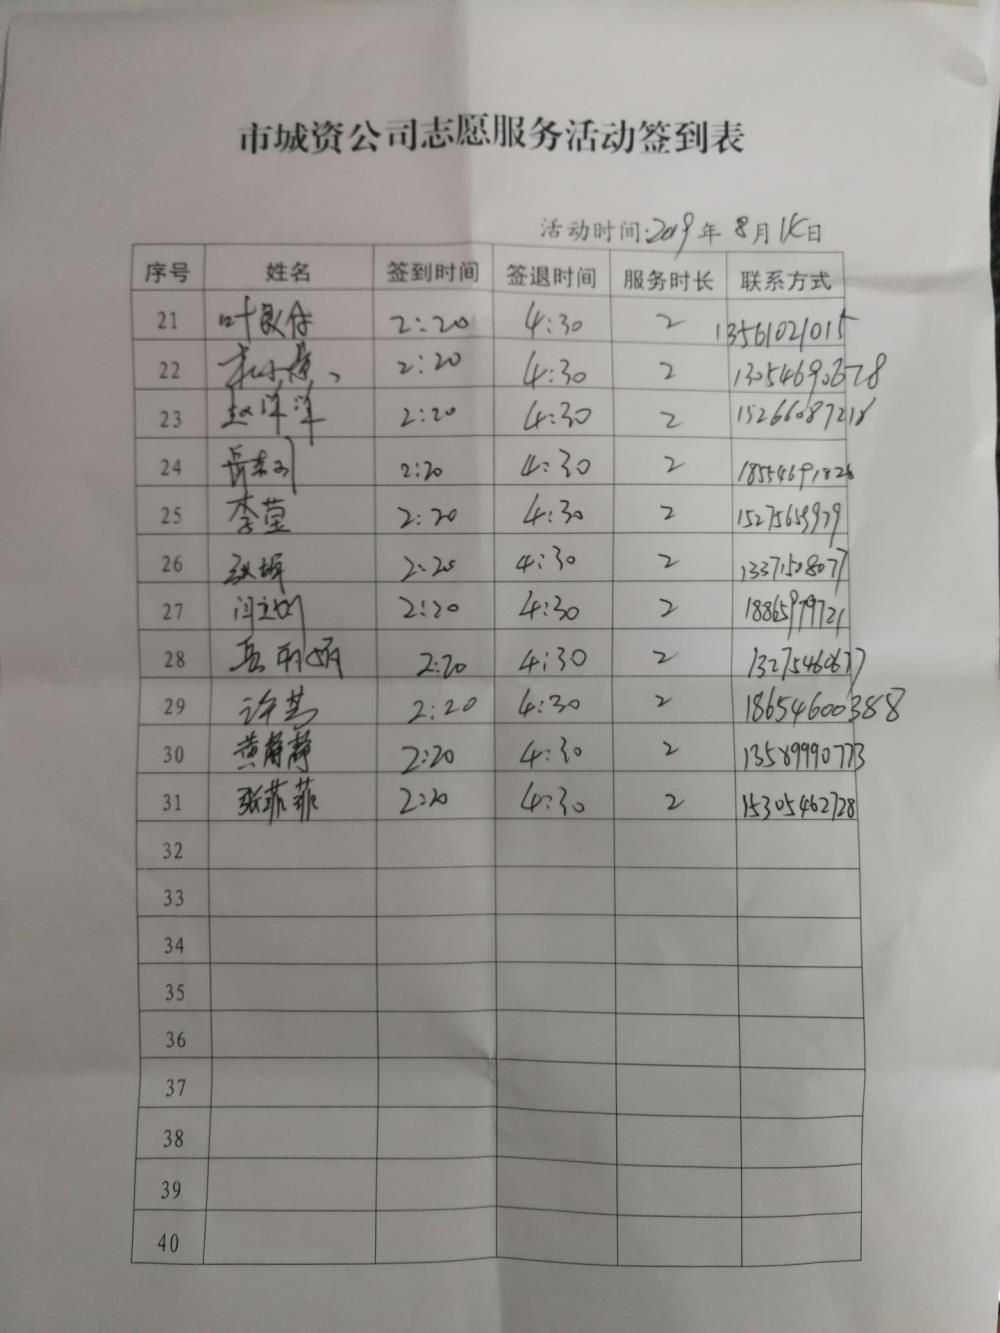 市城资公司志愿服务活动签到表
活动时间:2019年8月15日
序号 姓名 签到时间 签退时间 服务时长 联系方式
21 叶良存 2:20 4:30 2 13561021015
22 2:20 4:30 2 13054690678
23 赵洋洋 2:20 4:30 2 15266087218
24 2:20 4:30 2 18554691826
25 李莹 2:20 4:30 2 15275659979
26 2:20 4:30 2 13371508077
27 2:20 4:30 2 18865979721
28 2:20 4:30 2 13275460677
29 2:20 4:30 2 18654600388
30 黄静静 2:20 4:30 2 13589990773
31 张菲菲 2:20 4:30 2 15305462728
32
33
34
35
36
37
38
39
40